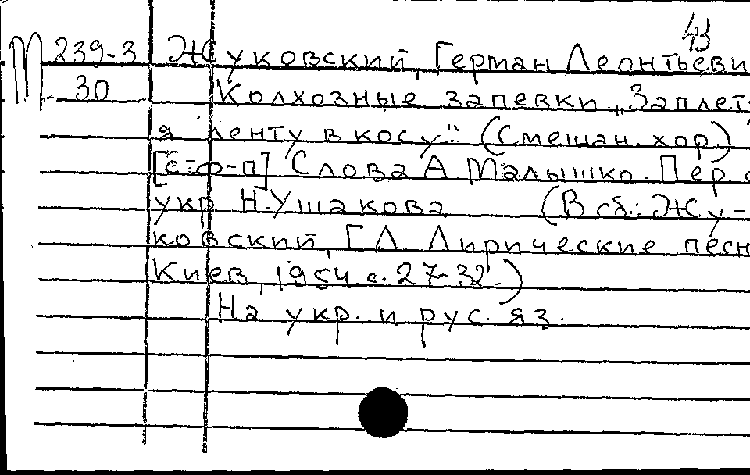 43
М 239-3 Жуковский, Герман Леонтьеви
30 Колхозные запевки „Заплет
я ленту в косу" (Смешан. хор)
[с ф-п] Слова А Малышко. Пер с
укр Н. Ушакова (В сб.: Жу-
ковский, Г.Л. Лирические песн
Киев, 1954 с. 27-32)
На укр. и рус. яз.